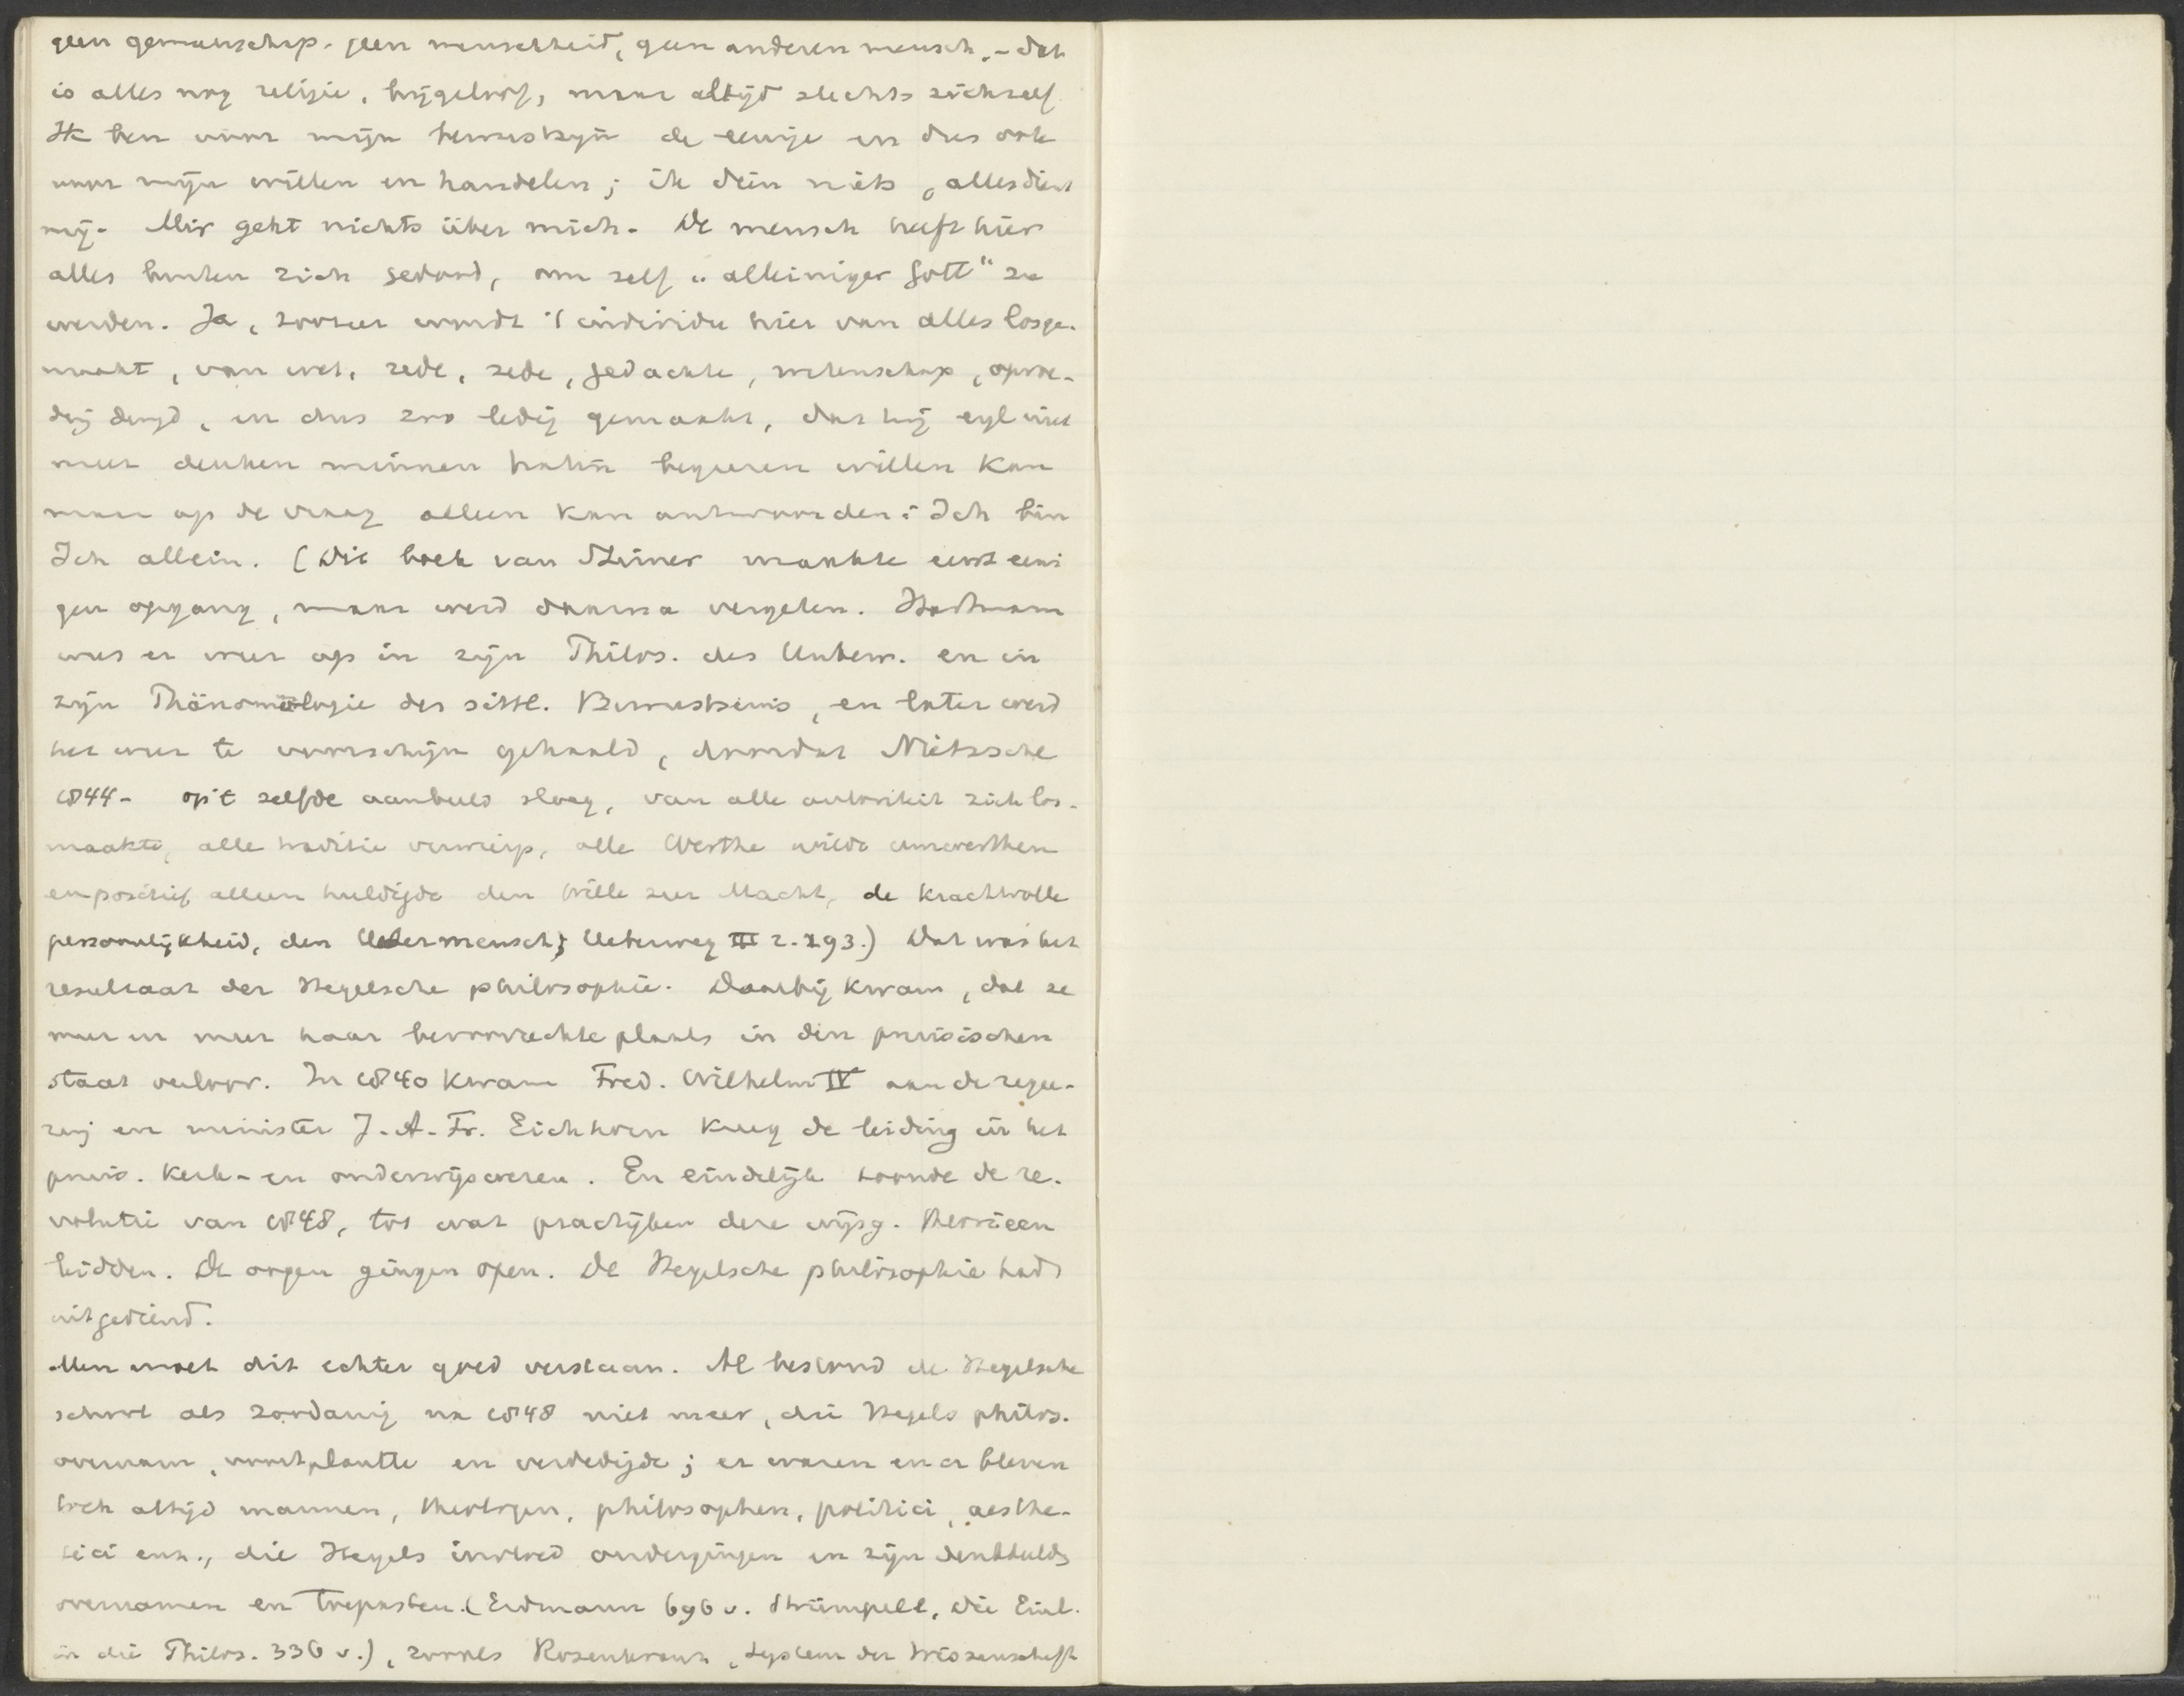 geen gemeenschap - geen menschheid, geen anderen mensch, - dat
is alles nog religie, bijgeloof, maar altijd slechts zichzelf
Ik ben voor mijn bewustzijn de eenige en dus ook
voor mijn willen en handelen; ik dien niets, alles dient
mij - Mir geht nichts über mich - De mensch heeft hier
alles buiten zich gedood, om zelf "alleiniger Gott" te
worden. Ja, zoozeer wordt 't individu hier van alles losge-
maakt, van wet, rede, zede, gedachte, wetenschap, opvoe-
ding deugd, en dus zoo ledig gemaakt, dat hij eigl niet
meer denken minnen haten begeeren willen kan
maar op de vraag alleen kan antwoorden: Ich bin
Ich allein. (Dit boek van Stirner maakte eerst eeni
gen opgang, maar werd daarna vergeten. Hartmann
wees er weer op in zijn Philos. des Unbew. en in
zijn Phänomologie des sittl. Bewustseins, en later werd
het weer te voorschijn gehaald, doordat Nietzsche
1844- op 't zelfde aanbeeld sloeg, van alle autoriteit zich los-
maakte, alle traditie verwierp, alle Werthe wilde umwerthen
en positief alleen huldigde den Wille zur Macht, de krachtvolle
persoonlijkheid, den Uebermensch; Ueberweg III 2. 193.) Dat was het
resultaat der Hegelsche philosophie. Daarbij kwam, dat ze
meer en meer haar bevoorrechte plaats in den pruisischen
staat verloor. In 1840 kwam Fred. Wilhelm IV aan de regee-
ring en minister J. A. Fr. Eichhorn kreeg de leiding in het
pruis. kerk- en onderwijswezen. En eindelijk toonde de re-
volutie van 1848, tot wat practijken deze wijsg. theorieen
leidden. De oogen gingen open. De Hegelsche philosophie had
uitgediend.
Men moet dit echter goed verstaan. Al bestond de Hegelsche
school als zoodanig na 1848 niet meer, die Hegels philos.
overnam, voortplantte en verdedigde; er waren en er bleven
toch altijd mannen, theologen, philosophen, politici, aesthe-
tici enz., die Hegels invloed ondergingen en zijn denkbeelds
overnamen en toepasten. (Erdmann 696 v. Strümpell, Die Einl.
in die Philos. 336 v.), zooals Rosenkranz, System der Wissenschaft